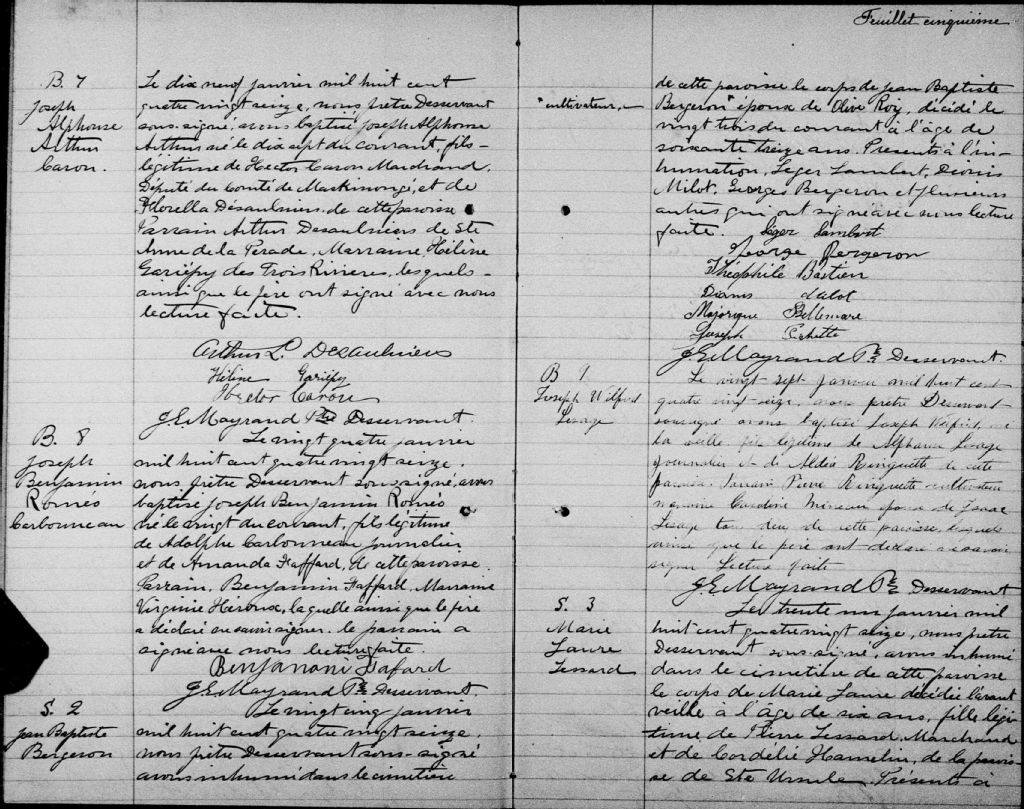 Feuillet cinquième
B. 7
Joseph
Alphonse
Arthur
Caron.
Le dix neuf janvier mil huit cent
quatre vingt seize, nous prêtre Desservant
sous-signé, avons baptisé Joseph Alphonse
Arthur né le dix sept du courant, fils
légitime de Hector Caron Marchand,
Député du Comté de Maskinongé, et de
Florella Désaulniers de cette paroisse
Parrain Arthur Desaulniers de Ste
Anne de la Perade, Marraine, Hélène
Gariépy des Trois Rivieres, lesquels
ainsi que le père ont signé avec nous
lecture faite.
Arthur L. Desaulniers
Hélène Gariépy
Hector Caron
J. E. Mayrand Ptre Desservant.
B. 8
Joseph
Benjamin
Roméo
Carbonneau
Le vingt quatre janvier
mil huit cent quatre vingt seize,
nous prêtre Desservant sous-signé, avons
baptisé Joseph Benjamin Roméo
né le vingt du courant, fils légitime
de Adolphe Carbonneau journalier
et de Amanda Faffard, de cette paroisse.
Parrain, Benjamin Faffard, Marraine
Virginie Heroux, laquelle ainsi que le père
a déclaré ne savoir signer. le parrain a
signé avec nous lecture faite.
Benjamin Fafard
J. E. Mayrand Ptre Desservant.
S. 2
Jean Baptiste
Bergeron
Le vingt cinq janvier
mil huit cent quatre vingt seize,
nous prêtre Desservant sous-signé
avons inhumé dans le cimetière
de cette paroisse le corps de Jean Baptiste
"cultivateur,"
Bergeron époux de Olive Roy, décédé le
vingt trois du courant à l'âge de
soixante treize ans. Présents à l'in-
humation, Leger Lambert, Dionis
Milot, Georges Bergeron et plusieurs
autres qui ont signé avec nous lecture
faite. Léger Lambert
George Bergeron
Théophile Bastien
Majorique Bellemare
Joseph
J. E. Mayrand Ptre Desservant.
B 9
Joseph Wilfrid
Lesage
Le vingt sept janvier mil huit cent
quatre vingt seize nous prêtre Desservant
soussigné avons baptisé Joseph Wilfrid né
la veille fils légitime de Alphonse Lesage
journalier et de Aldéa Ringuette de cette
paroisse. Parrain Pierre Ringuette cultivateur
marraine Caroline Mineau épouse de Isaac
Lesage tous deux de cette paroisse lesquels
ainsi que le père ont déclaré ne savoir
signer Lecture faite
J. E. Mayrand Ptre Desservant
S. 3
Marie
Laure
Lessard
Le trente un janvier mil
huit cent quatre vingt seize, nous prêtre
Desservant sous-signé, avons inhumé
dans le cimetière de cette paroisse
le corps de Marie Laure décédée l'avant
veille à l'âge de six ans, fille légi-
time de Pierre Lessard, Marchand
et de Cordélie Hamelin, de la parois-
se de Ste Ursule. Présents à